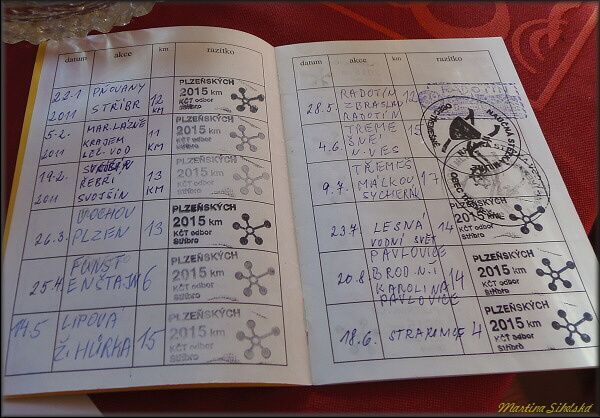 datum akce km razítko
22.1 2011 PŇOVANY STŘÍBR 12 KM PLZEŇSKÝCH 2015 km KČT odbor Stříbro
5.2. 2011 MAR.LÁZNĚ KRAJEM LÉČ.VOD 11 KM PLZEŇSKÝCH 2015 km KČT odbor Stříbro
19.2. 2011 ŘEBŘÍ SVOJŠÍN 13 KM PLZEŇSKÝCH 2015 km KČT odbor Stříbro
26.3. VOCHOV PLZEN 13 PLZEŇSKÝCH 2015 km KČT odbor Stříbro
25.4. 6 PLZEŇSKÝCH 2015 km KČT odbor Stříbro
14.5 LIPOVA Ž. HŮRKA 15 PLZEŇSKÝCH 2015 km KČT odbor Stříbro
datum akce km razítko
28.5. RADOTÍN ZBRASLAV RADOTÍN 12 RADOTÍN
4.6. TŘEMEŠNÉ N.VES 15 NAUČNÁ STEZKA
9.7. TŘEMEŠ MÁLKOV SYCHERÁK 17
23.7. LESNÁ VODNÍ SVĚT 14 PLZEŇSKÝCH 2015 km KČT odbor Stříbro
20.8 PAVLOVICE BROD N.T KAROLINA PAVLOVICE 14 PLZEŇSKÝCH 2015 km KČT odbor Stříbro
18.6. STRAKONICE 4 PLZEŇSKÝCH 2015 km KČT odbor Stříbro
Martina Sihelská